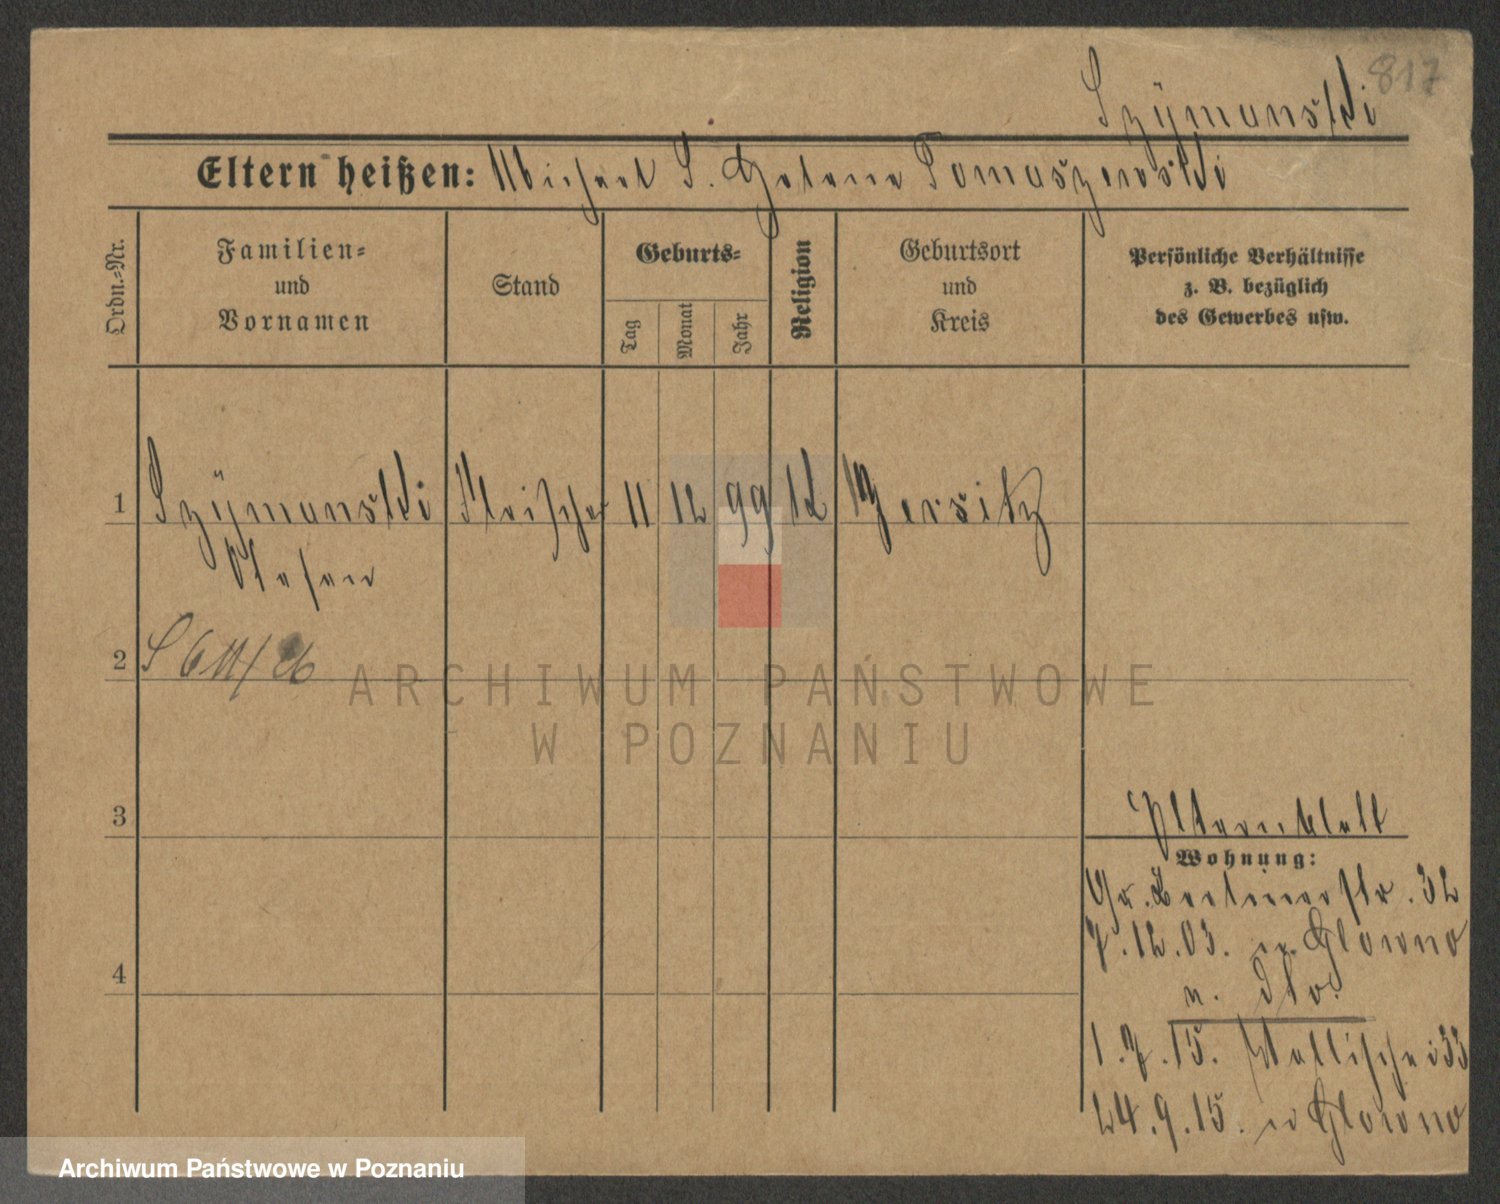 817
Szymanski
Eltern heißen: Michael S. Helene Tomaszewski
Ordn.-Nr.
Familien-
und
Vornamen
Stand
Geburts-
Tag
Monat
Jahr
Religion
Geburtsort
und
Kreis
Persönliche Verhältnisse
z. B. bezüglich
des Gewerbes usw.
1 Szymanski Fleischer 11 12 99 Jersitz
Stefan
2
ARCHIWUM PAŃSTWOWE
W POZNANIU
3
Elternblatt
Wohnung:
Gr. Berlinerstr. 32
7.12.03. n. Glowno
4
n. dto.
1.7.15. Wallischei 33
24.9.15. n Glowno
Archiwum Państwowe w Poznaniu